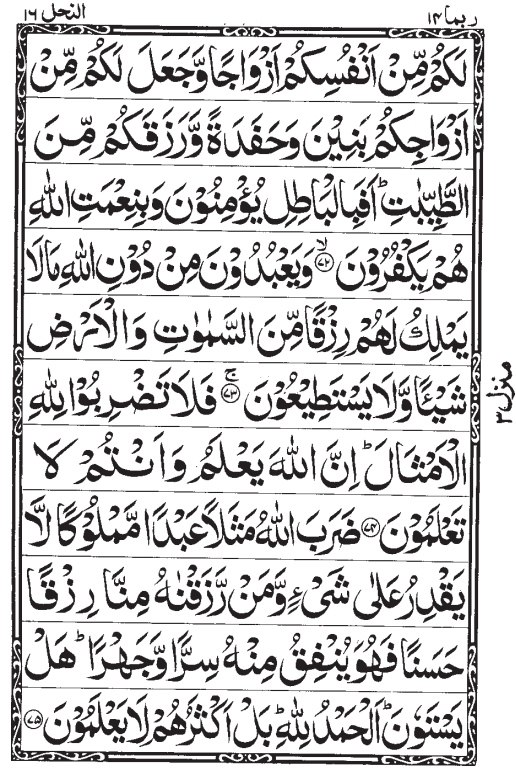 ربما ١٤
النحل ١٦
لَكُمْ مِّنْ اَنْفُسِكُمْ اَزْوَاجًا وَّجَعَلَ لَكُمْ مِّنْ
اَزْوَاجِكُمْ بَنِيْنَ وَحَفَدَةً وَّرَزَقَكُمْ مِّنَ
الطَّيِّبٰتِ ؕ اَفَبِالْبَاطِلِ يُؤْمِنُوْنَ وَبِنِعْمَتِ اللّٰهِ
هُمْ يَكْفُرُوْنَ ۙ‏﴿۷۲﴾ وَيَعْبُدُوْنَ مِنْ دُوْنِ اللّٰهِ مَا لَا
يَمْلِكُ لَهُمْ رِزْقًا مِّنَ السَّمٰوٰتِ وَالْاَرْضِ
شَيْـًٔا وَّلَا يَسْتَطِيْعُوْنَ ۚ‏﴿۷۳﴾ فَلَا تَضْرِبُوْا لِلّٰهِ
الْاَمْثَالَ ؕ اِنَّ اللّٰهَ يَعْلَمُ وَاَنْتُمْ لَا
تَعْلَمُوْنَ ﴿۷۴﴾ ضَرَبَ اللّٰهُ مَثَلًا عَبْدًا مَّمْلُوْكًا لَّا
يَقْدِرُ عَلٰى شَىْءٍ وَّمَنْ رَّزَقْنٰهُ مِنَّا رِزْقًا
حَسَنًا فَهُوَ يُنْفِقُ مِنْهُ سِرًّا وَّجَهْرًا ؕ هَلْ
يَسْتَوٗنَ ؕ اَلْحَمْدُ لِلّٰهِ ؕ بَلْ اَكْثَرُهُمْ لَا يَعْلَمُوْنَ ﴿۷۵﴾
منزل ٣